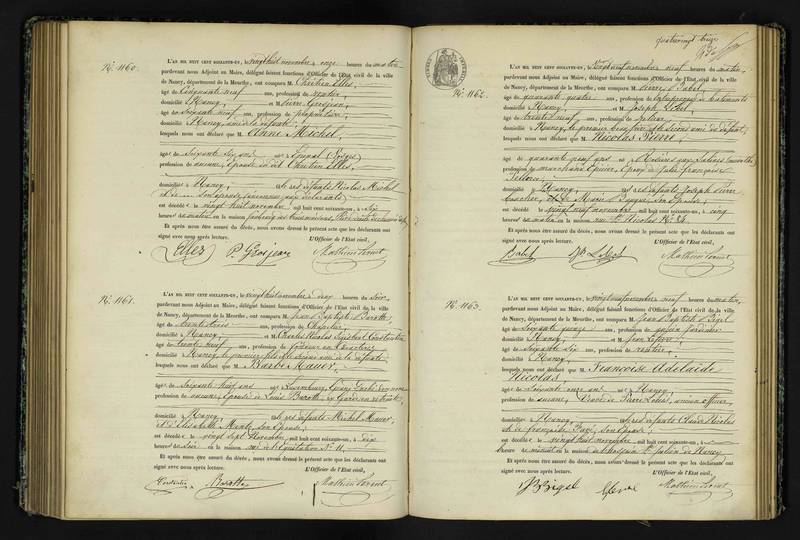 No. 1160.
L'AN MIL HUIT CENT SOIXANTE-UN, le vingt huit novembre, onze heures du matin
pardevant nous Adjoint au Maire, délégué faisant fonctions d'Officier de l'Etat civil de la ville
de Nancy, département de la Meurthe, ont comparu M. Chrétien Elles,
âgé de Cinquante neuf ans, profession de rentier,
domicilié à Nancy, et M. Pierre Grosjean,
âgé de Soixante neuf ans, profession de propriétaire,
domicilié à Nancy, amis de la défunte
lesquels nous ont déclaré que M. Anne Michel,
âgée de Soixante dix ans née à Epinal (Vosges)
profession de aucune, épouse de dit Chrétien Elles,
domiciliée à Nancy, et des défunts Nicolas Michel
est décédée le vingt huit novembre mil huit cent soixante-un, à six
heures du matin en la maison
Et après nous être assuré du décès, nous avons dressé le présent acte que les déclarants ont
signé avec nous après lecture. L'Officier de l'Etat civil,
Elles P. Grosjean Mathieu
No. 1161.
L'AN MIL HUIT CENT SOIXANTE-UN, le vingt huit novembre à deux heures du soir
pardevant nous Adjoint au Maire, délégué faisant fonctions d'Officier de l'Etat civil de la ville
de Nancy, département de la Meurthe, ont comparu M. Jean Baptiste Barotte,
âgé de trente ans, profession de Chapelier,
domicilié à Nancy, et M. Charles Nicolas Constantin
âgé de trente neuf ans, profession de
domicilié à Nancy, le premier fils et le second ami de la défunte
lesquels nous ont déclaré que M. Barbe Mauer,
âgée de Soixante huit ans née à Luxembourg
profession de aucune, épouse de Louis Barotte,
domiciliée à Nancy, et des défunts Michel Mauer,
et d'Elisabeth Mentz, son épouse,
est décédée le vingt sept novembre mil huit cent soixante-un, à dix
heures du soir en la maison rue de l'Equitation No. 11,
Et après nous être assuré du décès, nous avons dressé le présent acte que les déclarants ont
signé avec nous après lecture. L'Officier de l'Etat civil,
Constantin Barotte Mathieu
quatrevingt treize
No. 1162.
L'AN MIL HUIT CENT SOIXANTE-UN, le vingt neuf novembre, neuf heures du matin,
pardevant nous Adjoint au Maire, délégué faisant fonctions d'Officier de l'Etat civil de la ville
de Nancy, département de la Meurthe, ont comparu M. Pierre Babel,
âgé de quarante quatre ans, profession de entrepreneur de batiments
domicilié à Nancy, et M. Joseph
âgé de trente neuf ans, profession de
domicilié à Nancy, le premier beau frère et le second ami du défunt,
lesquels nous ont déclaré que M. Nicolas Pierre,
âgé de quarante neuf ans né à Rosières aux Salines (Meurthe)
profession de marchand épicier, époux de Julie Françoise
domicilié à Nancy, et des défunts Joseph Pierre
est décédé le vingt neuf novembre mil huit cent soixante-un, à cinq
heures du matin en la maison rue St Nicolas No. 34
Et après nous être assuré du décès, nous avons dressé le présent acte que les déclarants ont
signé avec nous après lecture. L'Officier de l'Etat civil,
Babel Mathieu
No. 1163.
L'AN MIL HUIT CENT SOIXANTE-UN, le vingt neuf novembre, neuf heures du matin,
pardevant nous Adjoint au Maire, délégué faisant fonctions d'Officier de l'Etat civil de la ville
de Nancy, département de la Meurthe, ont comparu M. Jean Baptiste Bigel
âgé de Soixante quinze ans, profession de
domicilié à Nancy, et M. Jean Lefevre,
âgé de Soixante six ans, profession de rentier,
domicilié à Nancy,
lesquels nous ont déclaré que M. Françoise Adélaïde
Nicolas,
âgée de Soixante onze ans née à Nancy,
profession de aucune, Veuve de Pierre
domiciliée à Nancy, et des défunts Claude Nicolas
et de Françoise son épouse,
est décédée le vingt huit novembre mil huit cent soixante-un, à
heure de minuit en la maison de l'hospice St Julien de Nancy,
Et après nous être assuré du décès, nous avons dressé le présent acte que les déclarants ont
signé avec nous après lecture. L'Officier de l'Etat civil,
JB Bigel Mathieu